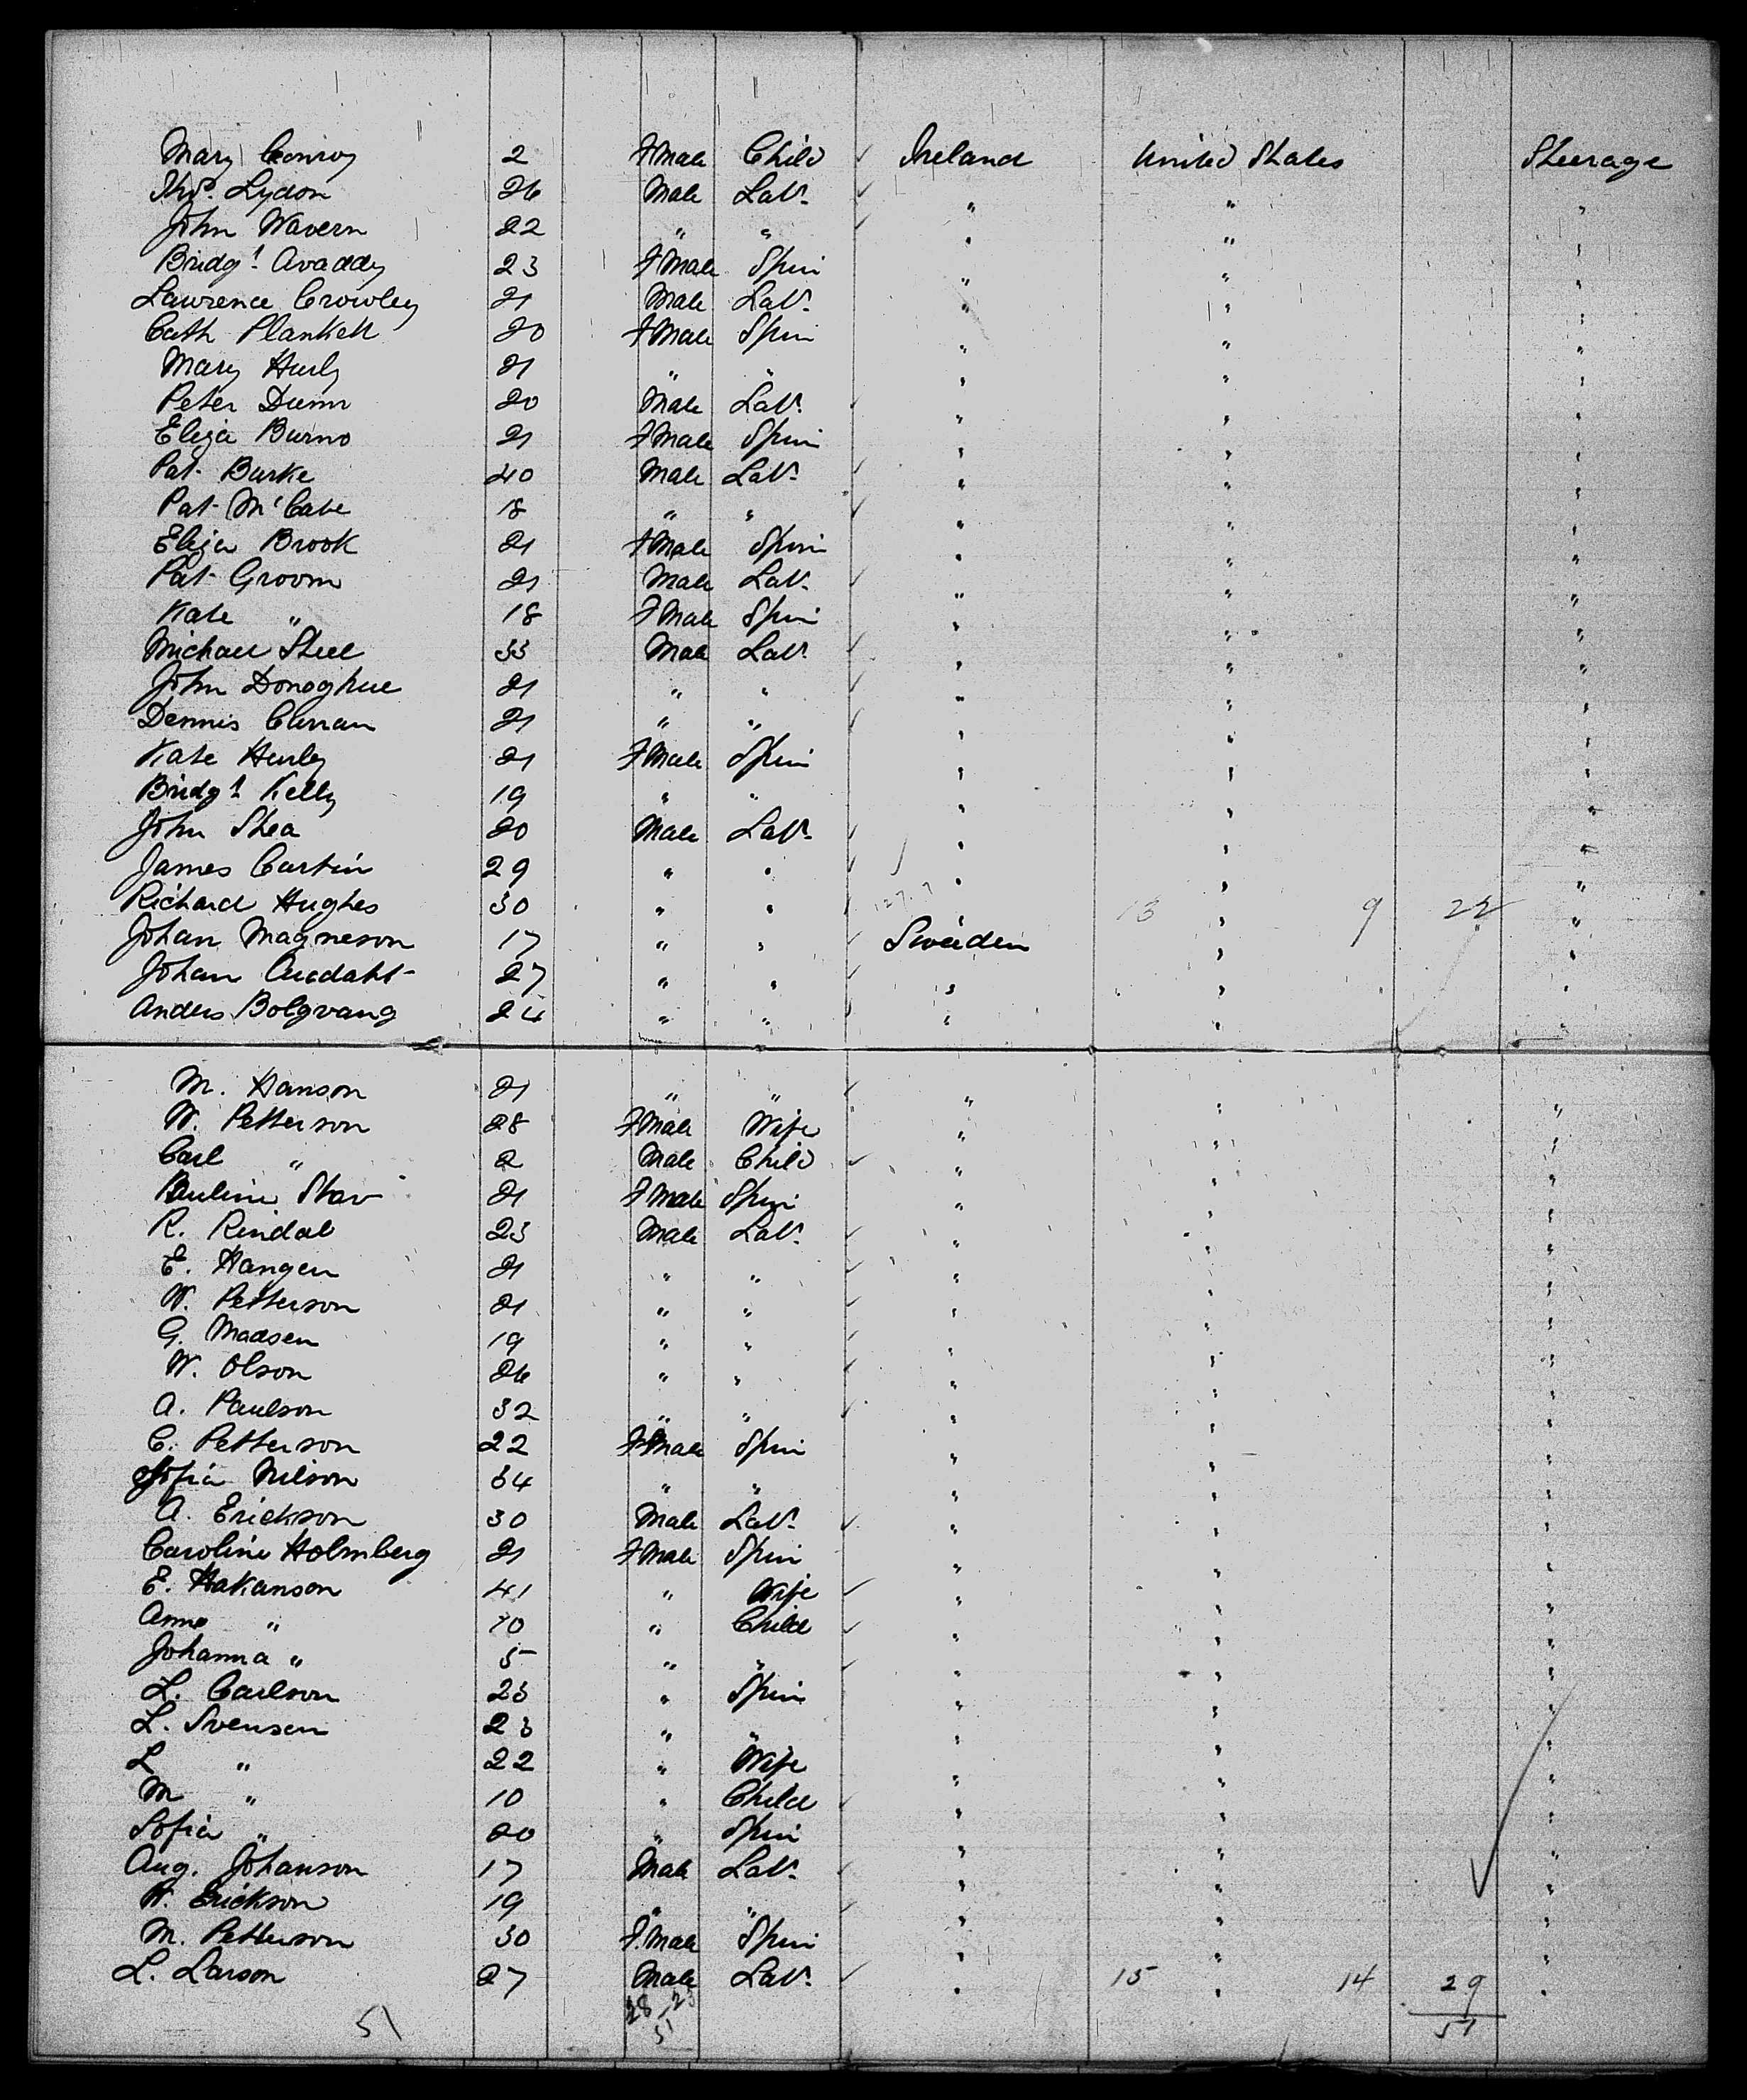 Mary Conroy 2 FMale Child Ireland United States Steerage
Thos. Lydon 26 Male Labr. " " "
John Wavern 22 " " " " "
Bridgt. Avaddy 23 FMale Spin " " "
Lawrence Crowley 21 Male Labr. " " "
Cath Plankett 20 FMale Spin " " "
Mary Hurly 21 " " " " "
Peter Dunn 20 Male Labr. " " "
Eliza Burns 21 FMale Spin " " "
Pat. Burke 40 Male Labr. " " "
Pat. McCabe 18 " " " " "
Eliza Brook 21 FMale Spin " " "
Pat. Groom 21 Male Labr. " " "
Kate " 18 FMale Spin " " "
Michael Steel 33 Male Labr. " " "
John Donoghue 21 " " " " "
Dennis Curran 21 " " " " "
Kate Hurley 21 FMale Spin " " "
Bridgt. Kelly 19 " " " " "
John Shea 20 Male Labr. " " "
James Curtin 29 " " " " "
Richard Hughes 30 " " " 13 " 9 22 "
Johan Magneson 17 " " Sweden " "
Johan 27 " " " " "
Anders Bolgvang 24 " " " " "
M. Hanson 21 " " " " "
W. Petterson 28 FMale Wife " " "
Carl " 2 Male Child " " "
Pauline Stav 21 FMale Spin " " "
R. Rindal 23 Male Labr. " " "
E. Hangen 21 " " " " "
W. Petterson 21 " " " " "
G. Madsen 19 " " " " "
W. Olson 26 " " " " "
A. Paulson 32 " " " " "
C. Petterson 22 FMale Spin " " "
Sofia Nilson 34 " " " " "
A. Erickson 30 Male Labr. " " "
Caroline Holmberg 21 FMale Spin " " "
E. Hakanson 41 " Wife " " "
Anna " 10 " Child " " "
Johanna " 5 " " " " "
L. Carlson 23 " Spin " " "
L. Svensen 23 " " " " "
L " 22 " Wife " " "
M " 10 " Child " " "
Sofia " 20 " Spin " " "
Aug. Johanson 17 Male Labr. " " "
W. Erickson 19 " " " " "
M. Petterson 30 F.Male Spin " " "
L. Larson 27 Male Labr. " 15 " 14 29 "
51 28-23 51
51